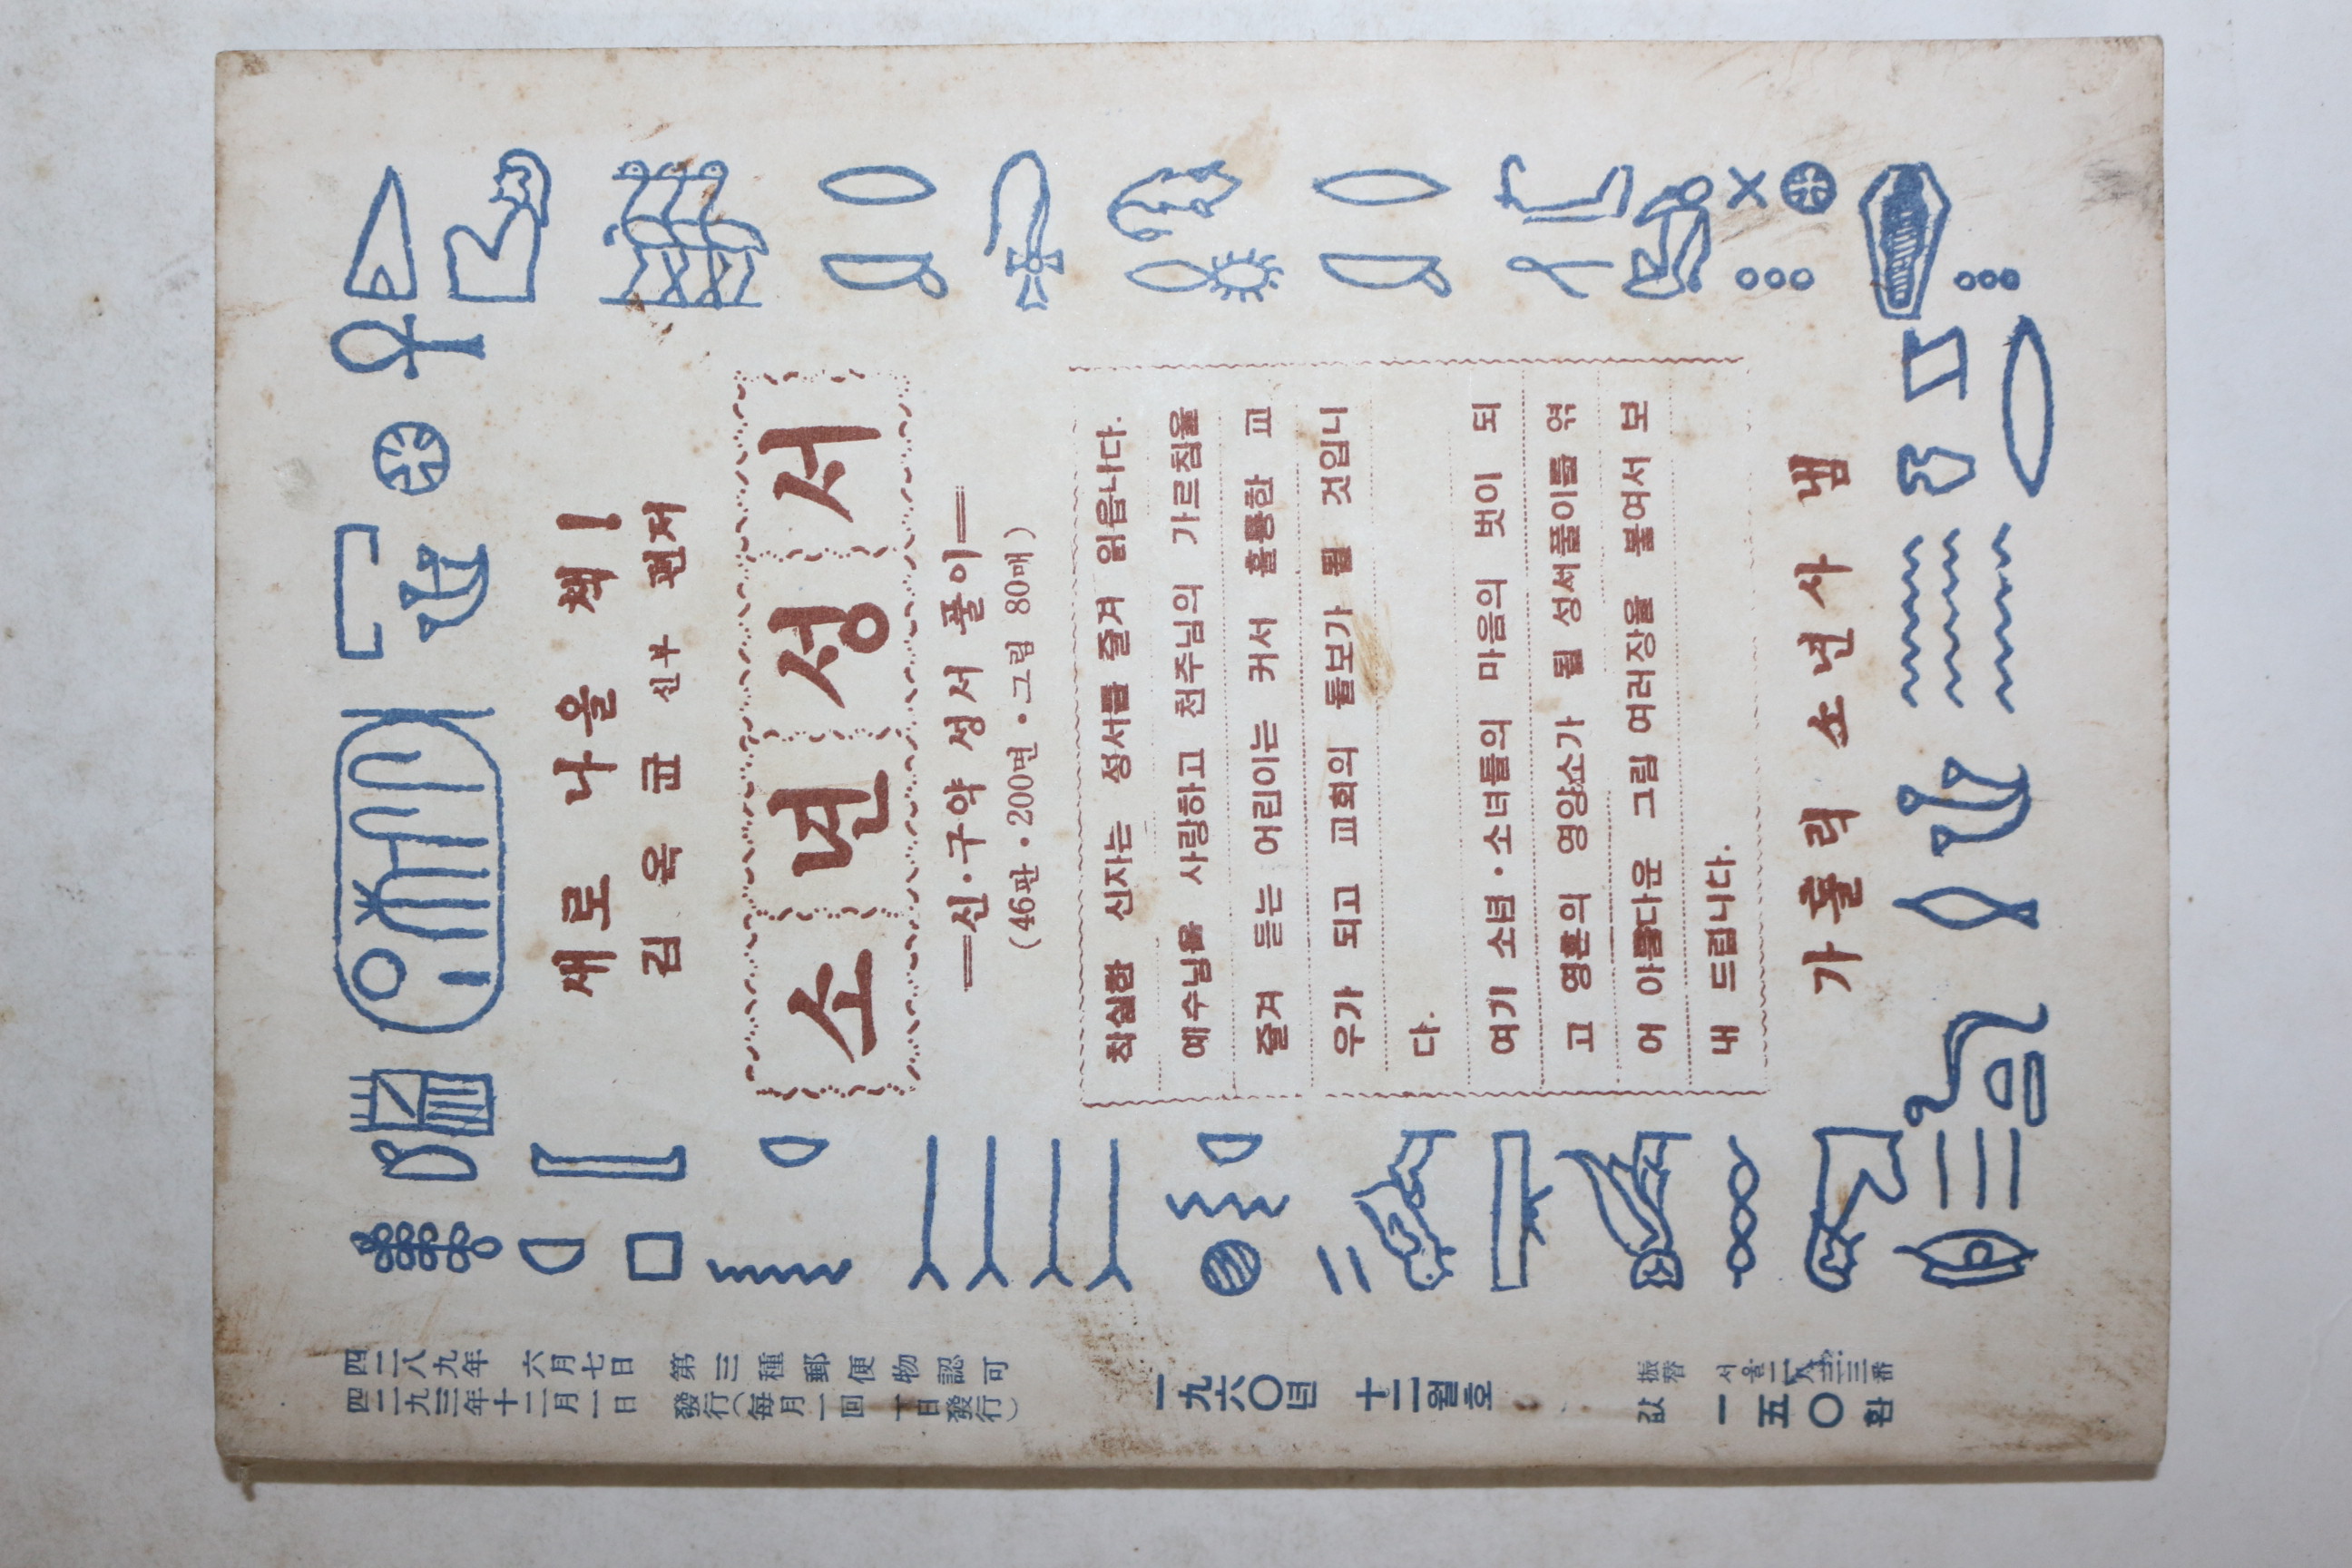 새로 나올 책!
김옥균 신부 편저
소년성서
=신·구약 성서 풀이=
(46판·200면·그림 80매)
착실한 신자는 성서를 즐겨 읽읍니다.
예수님을 사랑하고 천주님의 가르침을
즐겨 듣는 어린이는 커서 훌륭한 교
우가 되고 교회의 돌보가 될 것입니
다.
여기 소년·소녀들의 마음의 벗이 되
고 영혼의 영양소가 될 성서풀이를 엮
어 아름다운 그림 여러장을 붙여서 보
내 드립니다.
가톨릭 소년사 냄
四二八九年 六月七日 第三種郵便物認可
四二九三年十二月一日 發行(每月一回 一日發行)
一九六〇년 十二월호
振替 서울
値 一五〇환